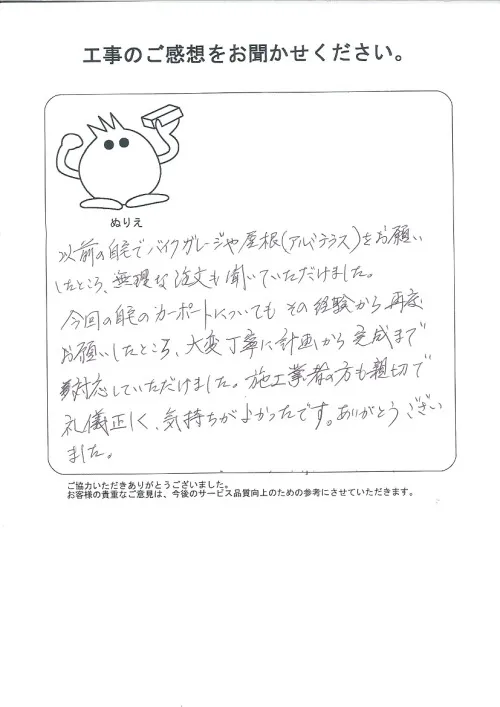 工事のご感想をお聞かせください。
ぬりえ
以前の自宅でバイクガレージや屋根(アルミテラス)をお願い
したところ、無理な注文も聞いていただけました。
今回の自宅のカーポートについても その経験から再度
お願いしたところ、大変丁寧に計画から完成まで
対応していただけました。施工業者の方も親切で
礼儀正しく、気持ちがよかったです。ありがとうござい
ました。
ご協力いただきありがとうございました。
お客様の貴重なご意見は、今後のサービス品質向上のための参考にさせていただきます。